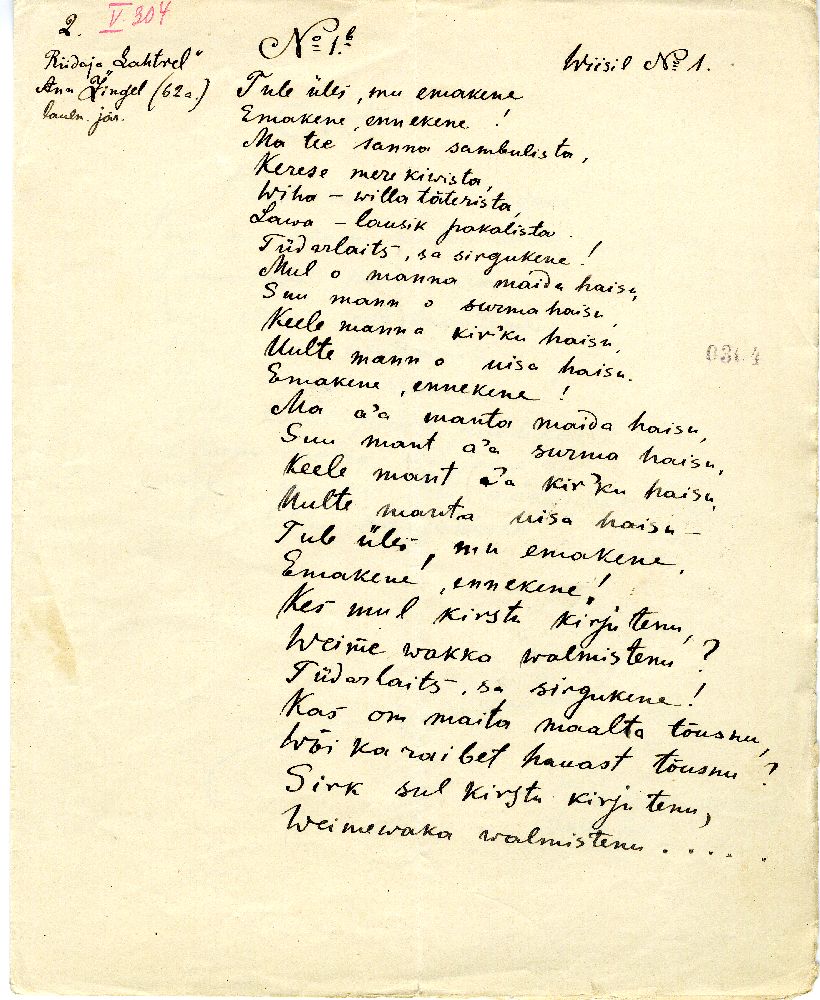 2. V 304
Riidaja Lahtrel"
Ann Zingel (62a.)
lauln. jär.
№ 1.b
Wiisil № 1.
Tule üles, mu emakene
Emakene, ennekene!
Ma tee sanna sambulista,
Kerese mere kiwista,
Wiha – willa täterista,
Lawa – lausik pakalista.
Tüdarlaits, sa sirgukene!
Mul o manna maida haisu,
Suu mann o surma haisu,
Keele manna kir'ku haisu,
Uulte mann o uisa haisu.
Emakene, ennekene!
Ma a'a manta maida haisu,
Suu mant a'a surma haisu,
Keele mant a'a kir'ku haisu,
Uulte manta uisa haisu –
Tule üles, mu emakene,
Emakene, ennekene!
Kes mul kirstu kirjutenu,
Weime wakka walmistenu?
Tüdarlaits, sa sirgukene!
Kas om maita maalta tõusnu,
Wõi ka raibet hauast tõusnu?
Sirk sul kirstu kirjutenu,
Weimewaka walmistenu . . . . .